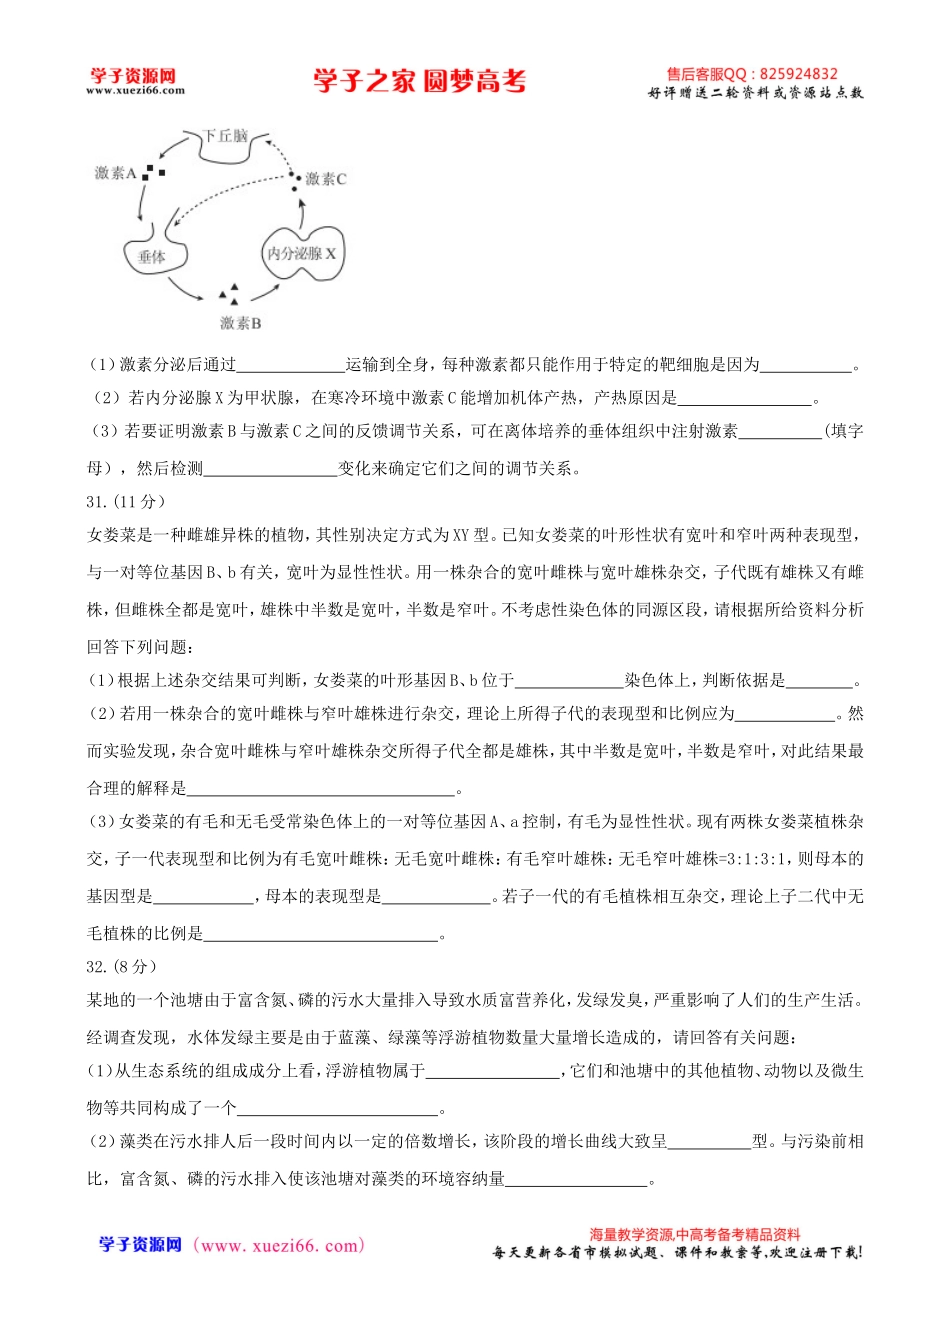 学子资源网
www.xuezi66.com
学子之家 圆梦高考
售后客服QQ：825924832
好评赠送二轮资料或资源站点数
下丘脑
激素A
激素C
垂体
内分泌腺 X
激素B
(1)激素分泌后通过_____________运输到全身,每种激素都只能作用于特定的靶细胞是因为___________。
(2) 若内分泌腺 X 为甲状腺，在寒冷环境中激素 C 能增加机体产热，产热原因是________________。
(3) 若要证明激素 B 与激素 C 之间的反馈调节关系,可在离体培养的垂体组织中注射激素__________(填字
母) ,然后检测________________变化来确定它们之间的调节关系。
31.(11 分)
女娄菜是一种雌雄异株的植物,其性别决定方式为 XY 型。已知女娄菜的叶形性状有宽叶和窄叶两种表现型,
与一对等位基因 B、b 有关,宽叶为显性性状。用一株杂合的宽叶雌株与宽叶雄株杂交,子代既有雄株又有雌
株,但雌株全都是宽叶,雄株中半数是宽叶,半数是窄叶。不考虑性染色体的同源区段,请根据所给资料分析
回答下列问题:
(1)根据上述杂交结果可判断,女娄菜的叶形基因 B、b 位于_____________染色体上,判断依据是________。
(2)若用一株杂合的宽叶雌株与窄叶雄株进行杂交,理论上所得子代的表现型和比例应为____________。然
而实验发现,杂合宽叶雌株与窄叶雄株杂交所得子代全都是雄株,其中半数是宽叶,半数是窄叶,对此结果最
合理的解释是________________________________。
(3)女娄菜的有毛和无毛受常染色体上的一对等位基因 A、a 控制,有毛为显性性状。现有两株女娄菜植株杂
交,子一代表现型和比例为有毛宽叶雌株:无毛宽叶雌株:有毛窄叶雄株:无毛窄叶雄株=3:1:3:1,则母本的
基因型是____________,母本的表现型是_____________。若子一代的有毛植株相互杂交,理论上子二代中无
毛植株的比例是____________________________。
32.(8 分)
某地的一个池塘由于富含氮、磷的污水大量排入导致水质富营养化,发绿发臭,严重影响了人们的生产生活。
经调查发现，水体发绿主要是由于蓝藻、绿藻等浮游植物数量大量增长造成的，请回答有关问题:
(1)从生态系统的组成成分上看,浮游植物属于________________,它们和池塘中的其他植物、动物以及微生
物等共同构成了一个________________________。
(2)藻类在污水排人后一段时间内以一定的倍数增长,该阶段的增长曲线大致呈__________型。与污染前相
比，富含氮、磷的污水排入使该池塘对藻类的环境容纳量_________________。
学子资源网（www.xuezi66.com）
海量教学资源,中高考备考精品资料
每天更新各省市模拟试题、课件和教案等,欢迎注册下载!